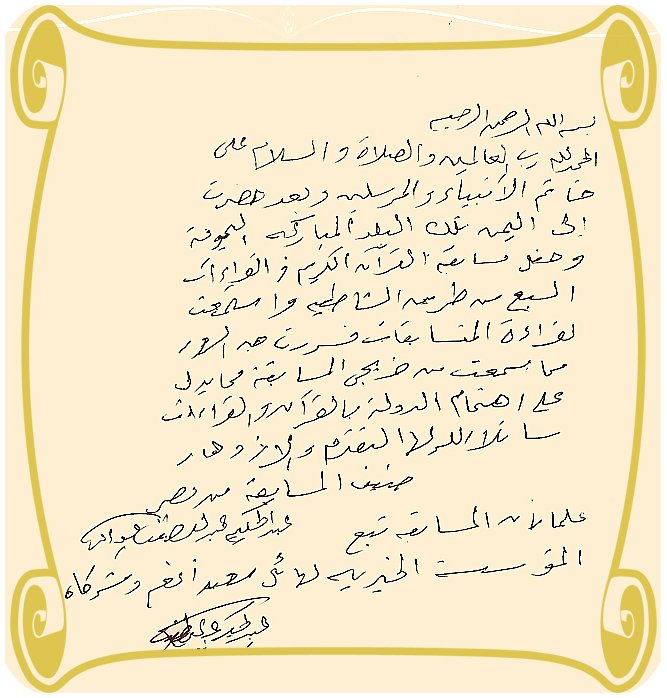 بسم الله الرحمن الرحيم
الحمد لله رب العالمين والصلاة والسلام على
خاتم الأنبياء والمرسلين وبعد حضرت
إلى اليمن تلك البلد المباركه الميمونة
وحفل مسابقة القرآن الكريم في القراءات
السبع من طريق الشاطبيه واستمعت
لقراءة المتسابقات فسررت
مما سمعت من خريجى المسابقة مما يدل
على اهتمام الدولة بالقرآن والقراءات
سائلا الله لها التقدم والازدهار
ضيف المسابقة من مصر
عبد الحكيم عبد اللطيف
علما بأن المسابقه تتبع
المؤسسة الخيريه لهائل سعيد أنعم وشركاه